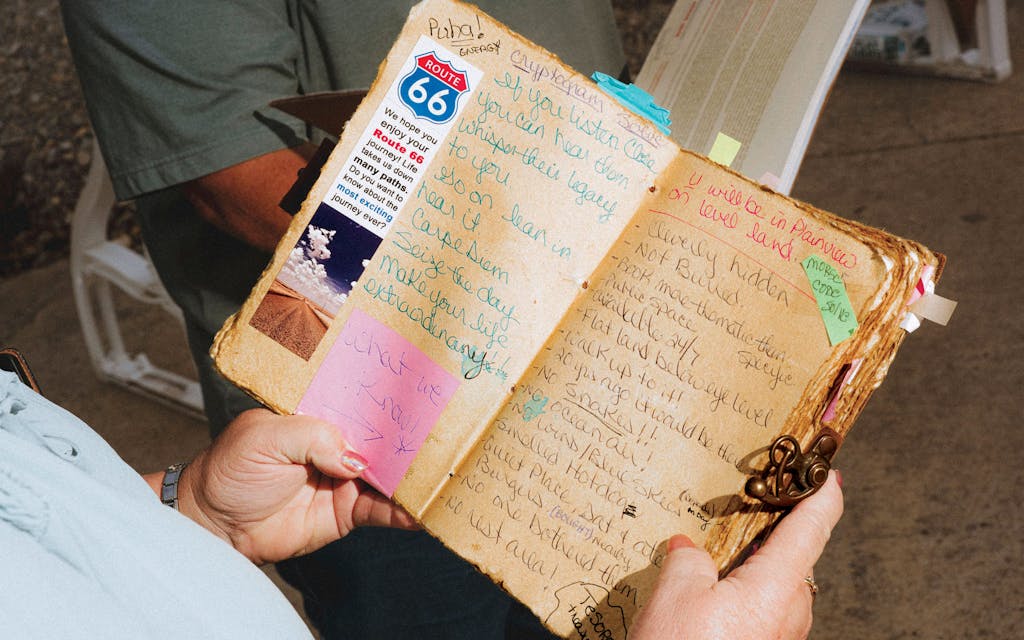 Puha!
ENERGY
cryptogram
ROUTE
66
We hope you
enjoy your
Route 66
journey! Life
takes us down
many paths.
Do you want to
know about the
most exciting
journey ever?
If you listen close
you can hear them
whisper their legacy
to you
Go on lean in
hear it
Carpe Diem
Seize the day
make your life
extraordinary!!
What we
Know!
U will be in Plainview
on level land.
MORSE
CODE
SOLVE
- Cleverly hidden
- Not Buried
- BOOK more thematic than
specific
- Public space
available 24/7
- Flat land below eye level
- Walk up to it!
- 80 yr. old it would be the
- No Snakes!!
- No ocean
- No
- Smelled Hotdogs &
Burgers
- Quiet Place Sat &
- No one bothered them
- No rest area!